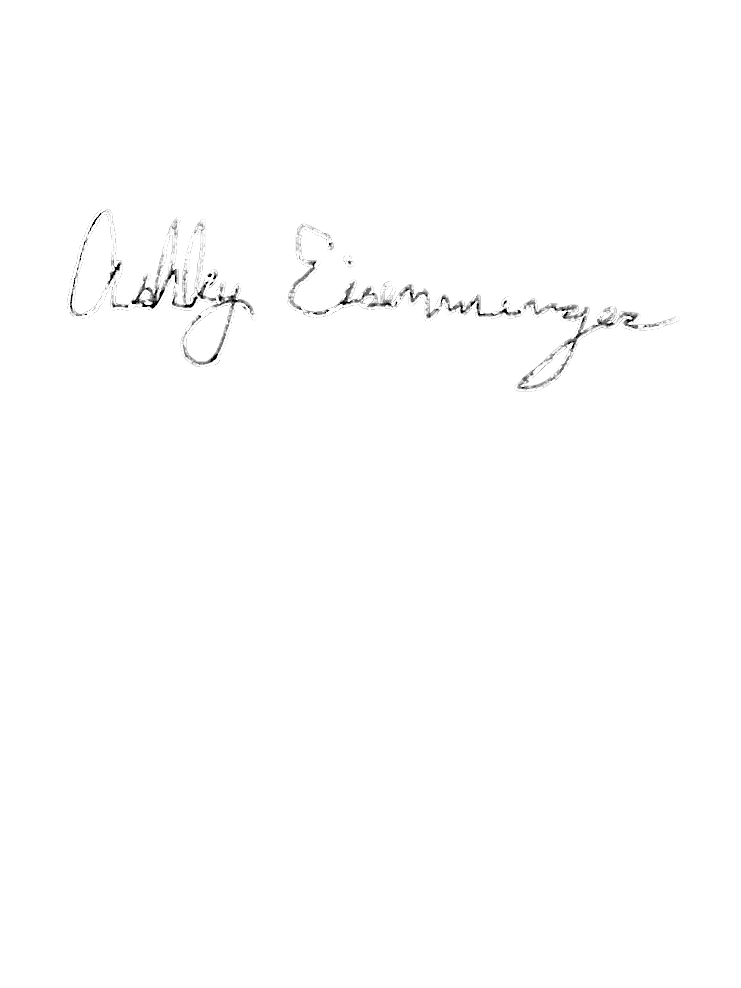 Ashley Eisenmenger